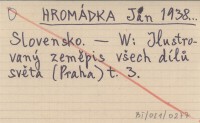 HROMÁDKA Ján 1938...
Slovensko. — W: Ilustro-
vaný zeměpis všech dílů
světa (Praha) t. 3.